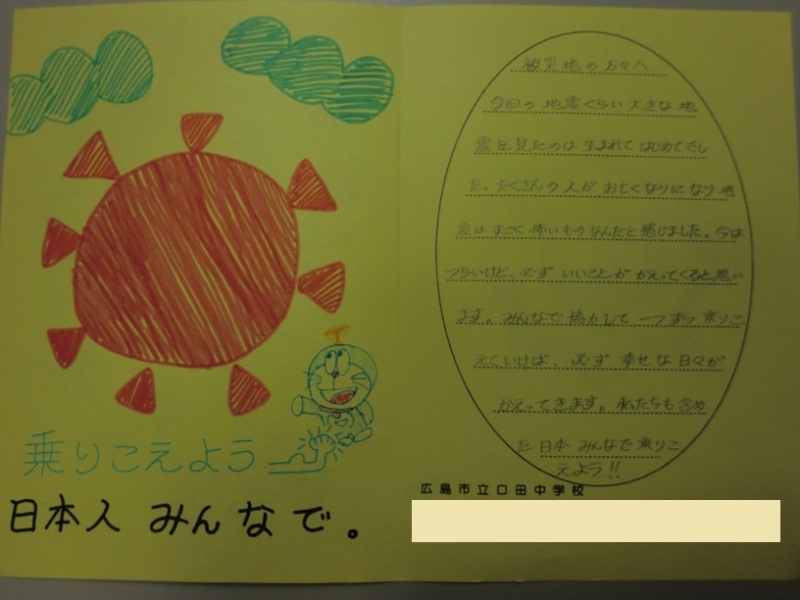 乗りこえよう
日本人 みんなで。
被災地の方々へ
今回の地震くらい大きな地
震を見たのは生まれてはじめてでし
た。たくさんの人がお亡くなりになり地
震はすごく怖いものなんだと感じました。今は
つらいけど、必ずいいことがかえってくると思い
ます。みんなで協力して一つずつ乗りこ
えていけば、必ず幸せな日々が
かえってきます。私たちも含め
た日本みんなで乗りこ
えよう!!
広島市立口田中学校